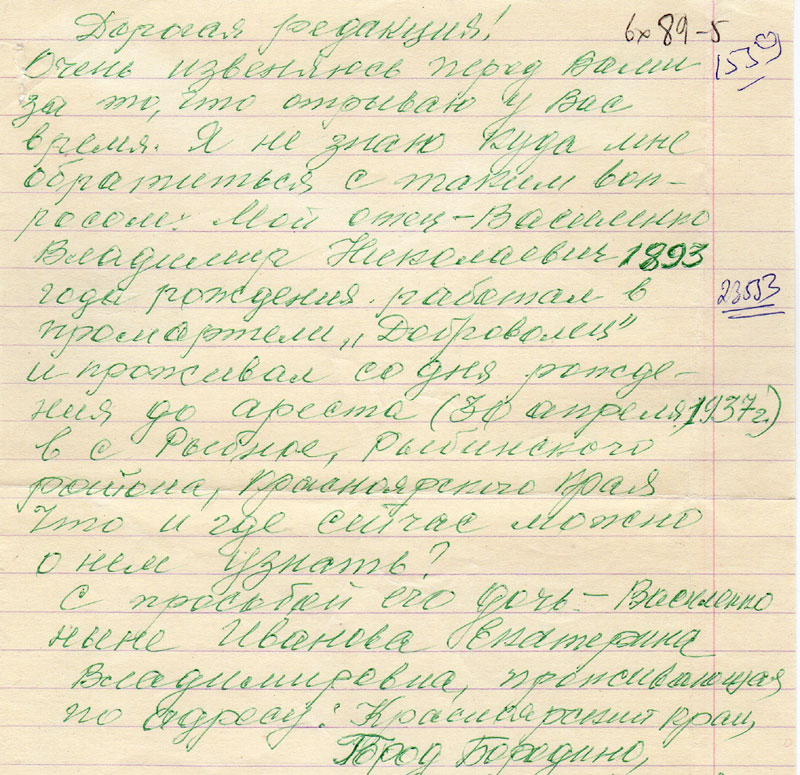 Дорогая редакция!
6х 89-5
Очень извеняюсь перед Вами
1559
за то, что отрываю у Вас
время. Я не знаю куда мне
обратиться с таким воп-
росом: Мой отец – Василенко
Владимир Николаевич 1893
года рождения. работал в
23553
промартели „Доброволец"
и проживал со дня рожде-
ния до ареста (30 апреля 1937г.)
в с Рыбное, Рыбинского
района, Красноярского Края
Что и где сейчас можно
о нем узнать?
с просьбой его дочь – Василенко
ныне Иванова Екатерина
Владимировна, проживающая
по адресу: Красноярский край,
Город Бородино,